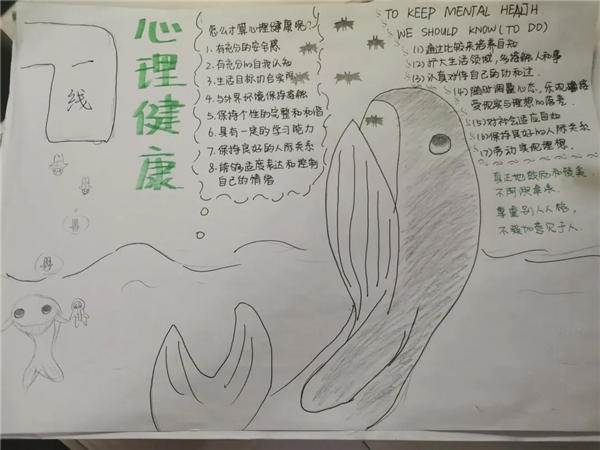 一
线
心理健康
怎么才算心理健康呢？
1. 有充分的安全感
2. 有充分的自我认知
3. 生活目标切合实际
4. 与外界环境保持接触
5. 保持个性的完整和和谐
6. 具有一定的学习能力
7. 保持良好的人际关系
8. 能够适度表达和控制
自己的情绪
TO KEEP MENTAL HEALTH
WE SHOULD KNOW (TO DO)
(1) 通过比较来培养自知
(2) 扩大生活领域，多接触人和事
(3) 认真对待自己的功和过
(4) 随时调整心态，乐观
受现实与理想的落差
(5) 对社会适应自知
(6) 保持良好的人际关系
(7) 劳动实现理想
真正地鼓励和赞美
不阿谀奉承
尊重别人人格，
不强加意见于人